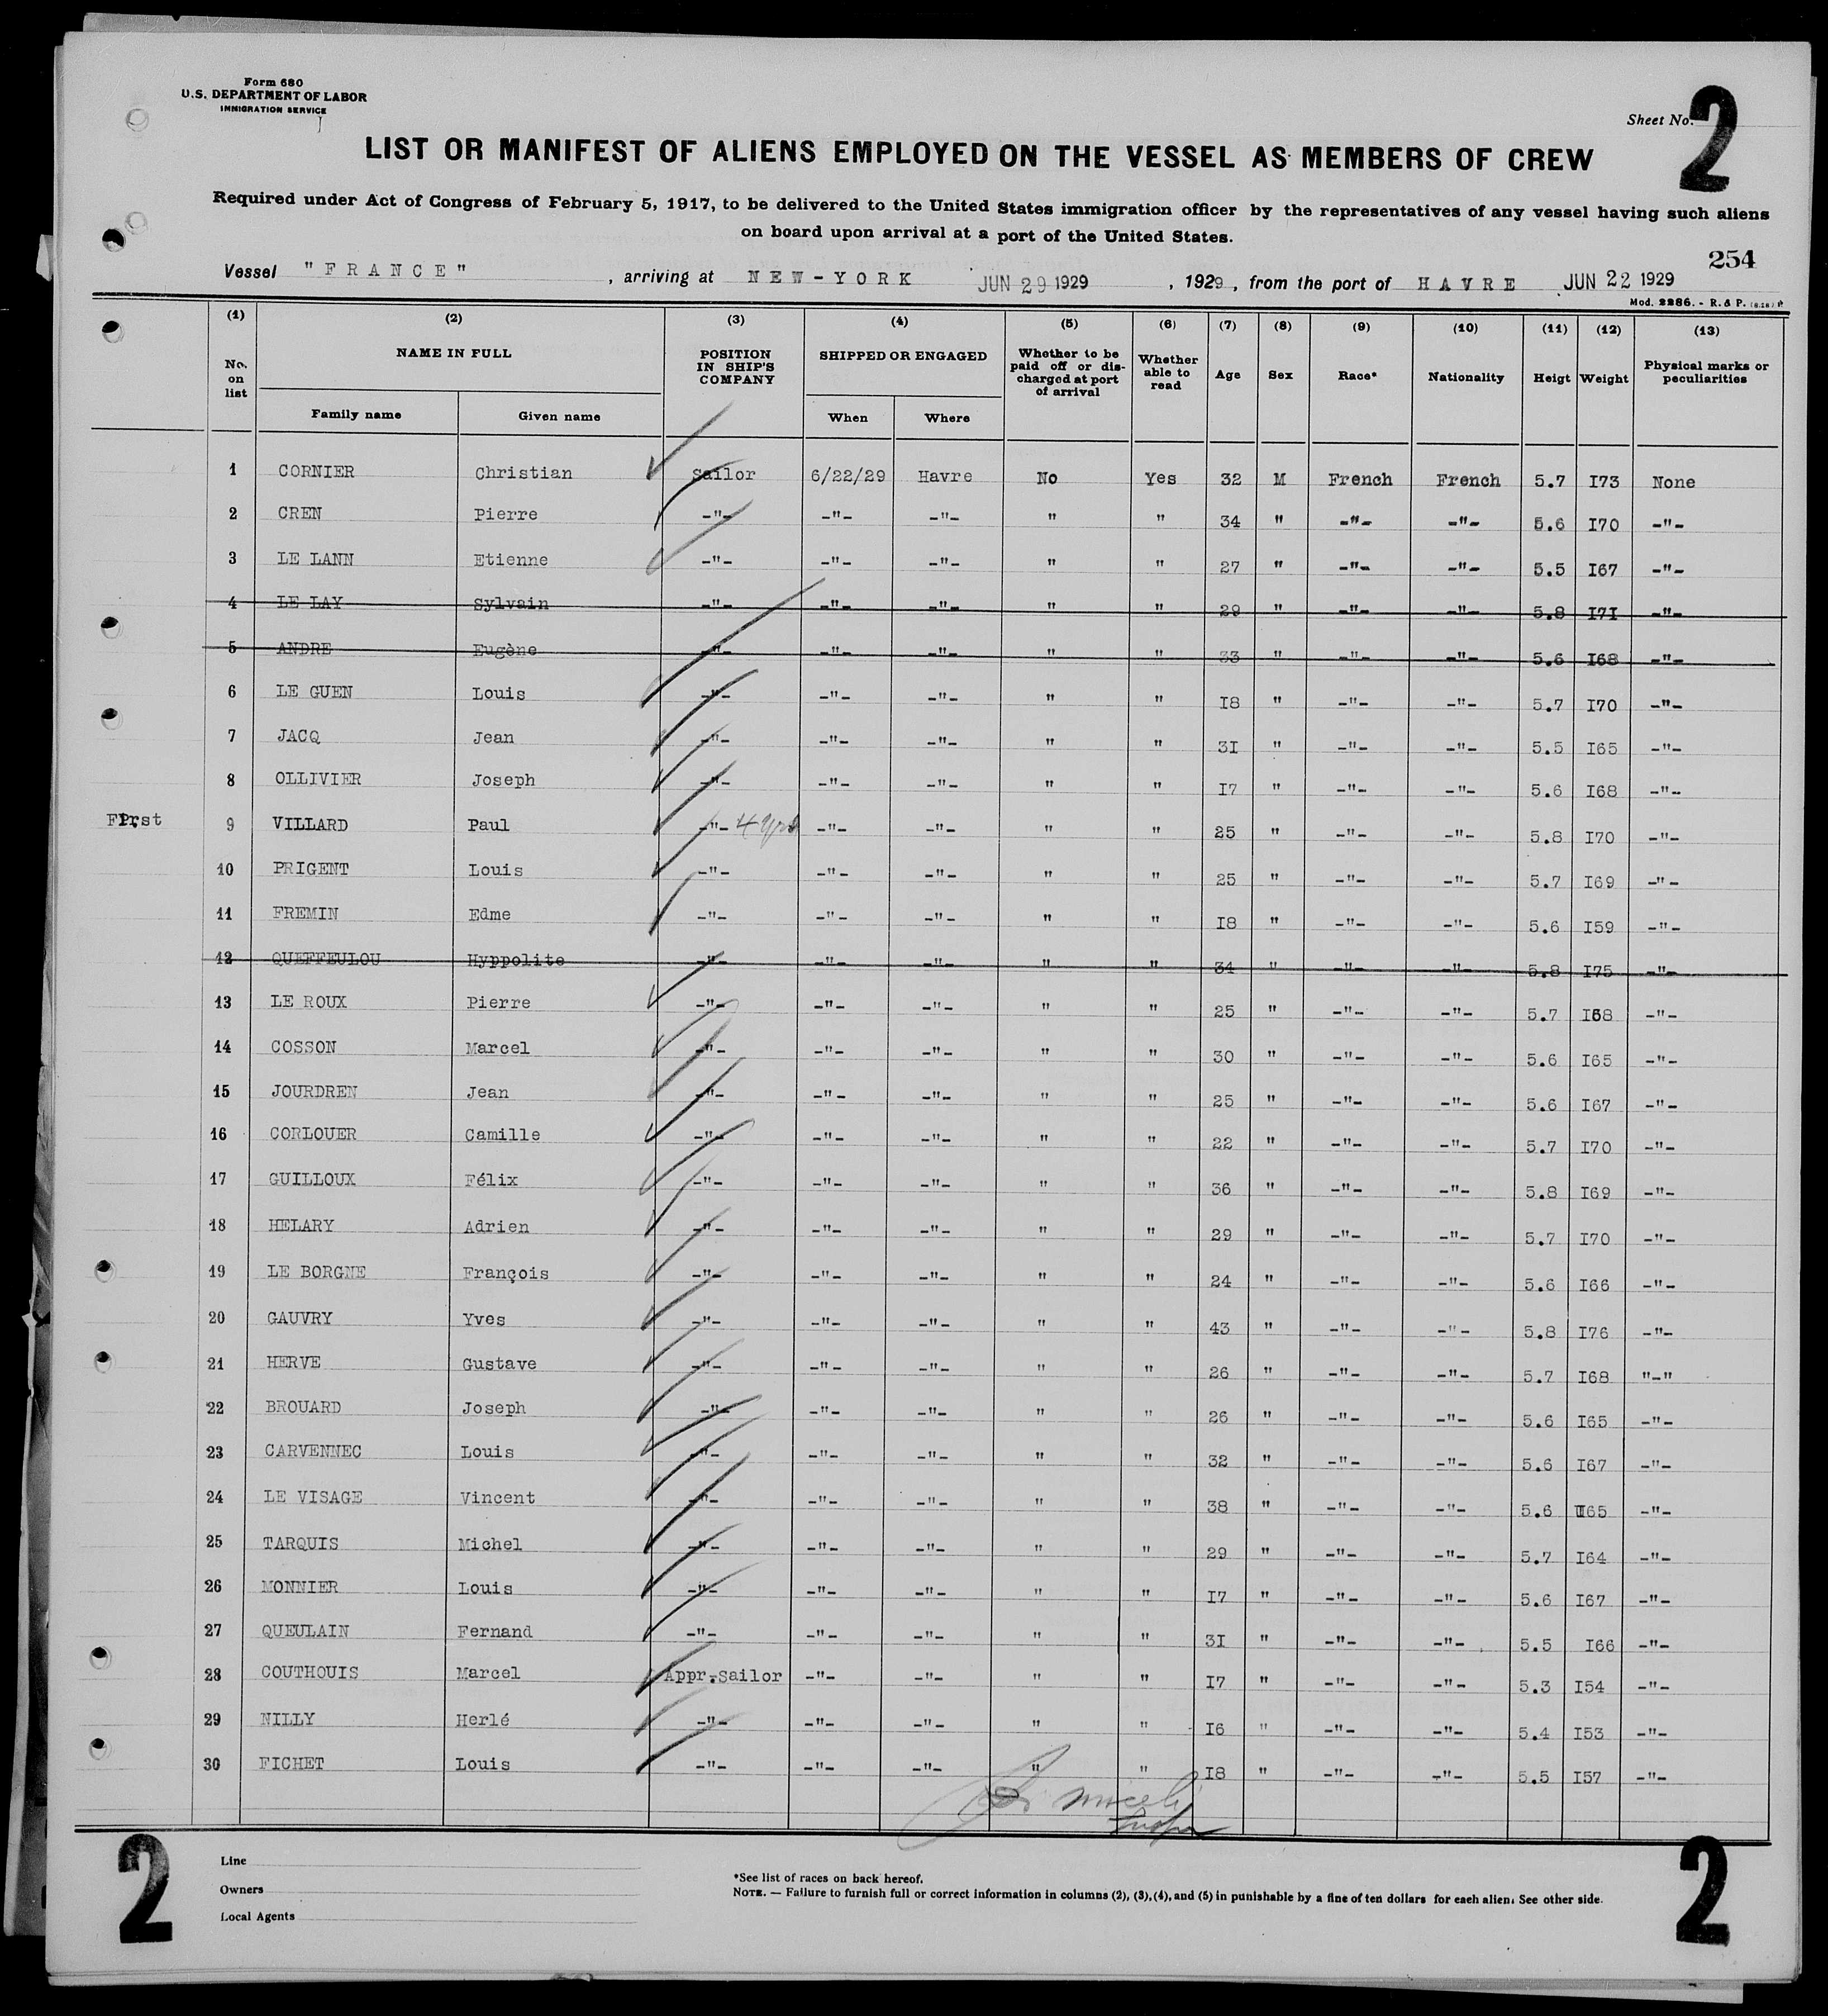 Form 680
U.S. DEPARTMENT OF LABOR
IMMIGRATION SERVICE
Sheet No. 2
LIST OR MANIFEST OF ALIENS EMPLOYED ON THE VESSEL AS MEMBERS OF CREW
Required under Act of Congress of February 5, 1917, to be delivered to the United States immigration officer by the representatives of any vessel having such aliens
on board upon arrival at a port of the United States.
254
Vessel "FRANCE", arriving at NEW-YORK JUN 29 1929, 1929, from the port of HAVRE JUN 22 1929
Mod. 2286. - R. & P.
(1) (2) (3) (4) (5) (6) (7) (8) (9) (10) (11) (12) (13)
No. on list NAME IN FULL POSITION IN SHIP'S COMPANY SHIPPED OR ENGAGED Whether to be paid off or discharged at port of arrival Whether able to read Age Sex Race* Nationality Heigt Weight Physical marks or peculiarities
Family name Given name When Where
1 CORNIER Christian Sailor 6/22/29 Havre No Yes 32 M French French 5.7 I73 None
2 CREN Pierre -"- -"- -"- " " 34 " -"- -"- 5.6 I70 -"-
3 LE LANN Etienne -"- -"- -"- " " 27 " -"- -"- 5.5 I67 -"-
4 LE LAY Sylvain -"- -"- -"- " " 29 " -"- -"- 5.8 I7I -"-
5 ANDRE Eugène -"- -"- -"- " " 33 " -"- -"- 5.6 I68 -"-
6 LE GUEN Louis -"- -"- -"- " " I8 " -"- -"- 5.7 I70 -"-
7 JACQ Jean -"- -"- -"- " " 3I " -"- -"- 5.5 I65 -"-
8 OLLIVIER Joseph -"- -"- -"- " " I7 " -"- -"- 5.6 I68 -"-
First 9 VILLARD Paul -"- 4 yrs -"- -"- " " 25 " -"- -"- 5.8 I70 -"-
10 PRIGENT Louis -"- -"- -"- " " 25 " -"- -"- 5.7 I69 -"-
11 FREMIN Edme -"- -"- -"- " " I8 " -"- -"- 5.6 I59 -"-
12 QUEFFEULOU Hyppolite -"- -"- -"- " " 34 " -"- -"- 5.8 I75 -"-
13 LE ROUX Pierre -"- -"- -"- " " 25 " -"- -"- 5.7 I68 -"-
14 COSSON Marcel -"- -"- -"- " " 30 " -"- -"- 5.6 I65 -"-
15 JOURDREN Jean -"- -"- -"- " " 25 " -"- -"- 5.6 I67 -"-
16 CORLOUER Camille -"- -"- -"- " " 22 " -"- -"- 5.7 I70 -"-
17 GUILLOUX Félix -"- -"- -"- " " 36 " -"- -"- 5.8 I69 -"-
18 HELARY Adrien -"- -"- -"- " " 29 " -"- -"- 5.7 I70 -"-
19 LE BORGNE François -"- -"- -"- " " 24 " -"- -"- 5.6 I66 -"-
20 GAUVRY Yves -"- -"- -"- " " 43 " -"- -"- 5.8 I76 -"-
21 HERVE Gustave -"- -"- -"- " " 26 " -"- -"- 5.7 I68 "-"
22 BROUARD Joseph -"- -"- -"- " " 26 " -"- -"- 5.6 I65 -"-
23 CARVENNEC Louis -"- -"- -"- " " 32 " -"- -"- 5.6 I67 -"-
24 LE VISAGE Vincent -"- -"- -"- " " 38 " -"- -"- 5.6 I65 -"-
25 TARQUIS Michel -"- -"- -"- " " 29 " -"- -"- 5.7 I64 -"-
26 MONNIER Louis -"- -"- -"- " " I7 " -"- -"- 5.6 I67 -"-
27 QUEULAIN Fernand -"- -"- -"- " " 3I " -"- -"- 5.5 I66 -"-
28 COUTHOUIS Marcel Appr.Sailor -"- -"- " " I7 " -"- -"- 5.3 I54 -"-
29 NILLY Herlé -"- -"- -"- " " I6 " -"- -"- 5.4 I53 -"-
30 FICHET Louis -"- -"- -"- " " I8 " -"- -"- 5.5 I57 -"-
2 2
Line
Owners
Local Agents
*See list of races on back hereof.
NOTE. — Failure to furnish full or correct information in columns (2), (3), (4), and (5) in punishable by a fine of ten dollars for each alien. See other side.